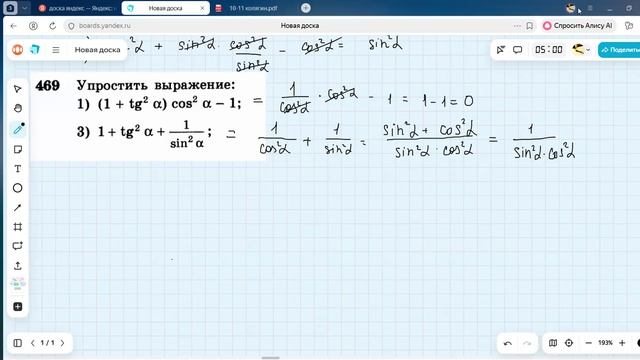 доска яндекс — Яндекс
Новая доска
10-11 колягин.pdf
boards.yandex.ru
Новая доска
Спросить Алису AI
Новая доска
05:00
Поделиться
α + sin²α · cos²α / sin²α − cos²α = sin²α
469 Упростить выражение:
1) (1 + tg² α) cos² α − 1; = 1 / cos²α · cos²α − 1 = 1 − 1 = 0
3) 1 + tg² α + 1 / sin² α; = 1 / cos²α + 1 / sin²α = sin²α + cos²α / sin²α · cos²α = 1 / sin²α · cos²α
1 / 1
193%